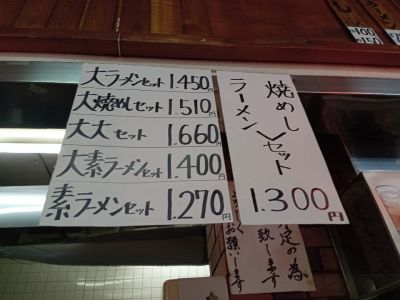 大ラーメンセット 1.450円
大焼めしセット 1.510円
大大セット 1.660円
大素ラーメンセット 1.400円
素ラーメンセット 1.270円
焼めし
ラーメン
セット
1.300円
定の為
致します
お願いします
400
150